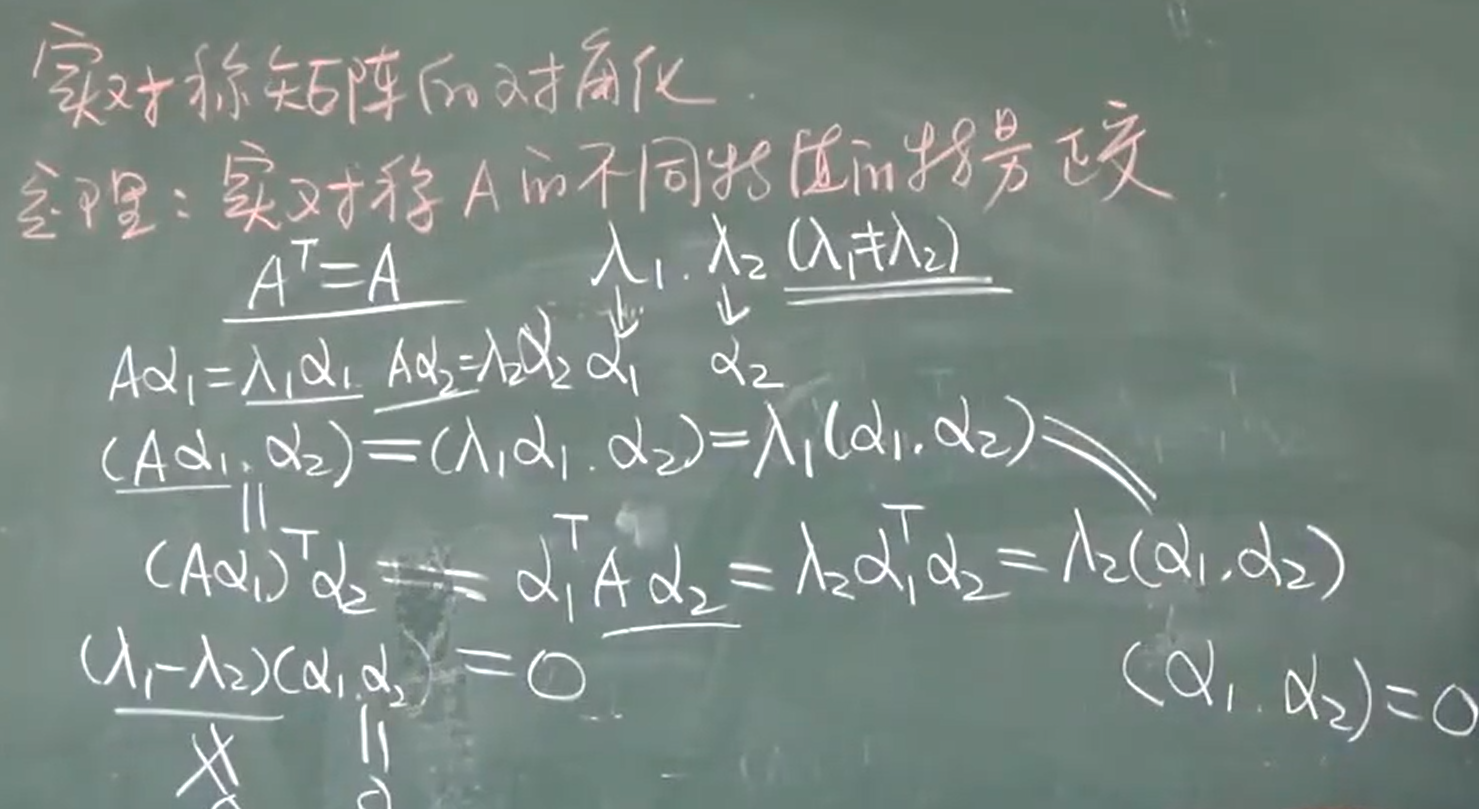 实对称矩阵的对角化.
定理：实对称A的不同特值的特量正交
Aᵀ=A λ₁.λ₂(λ₁≠λ₂)
↓ ↓
Aα₁=λ₁α₁ Aα₂=λ₂α₂ α₁ α₂
(Aα₁.α₂)=(λ₁α₁.α₂)=λ₁(α₁.α₂)
||
(Aα₁)ᵀα₂=α₁ᵀAα₂=λ₂α₁ᵀα₂=λ₂(α₁.α₂)
(λ₁-λ₂)(α₁.α₂)=0 (α₁.α₂)=0
∦ ||
0 0